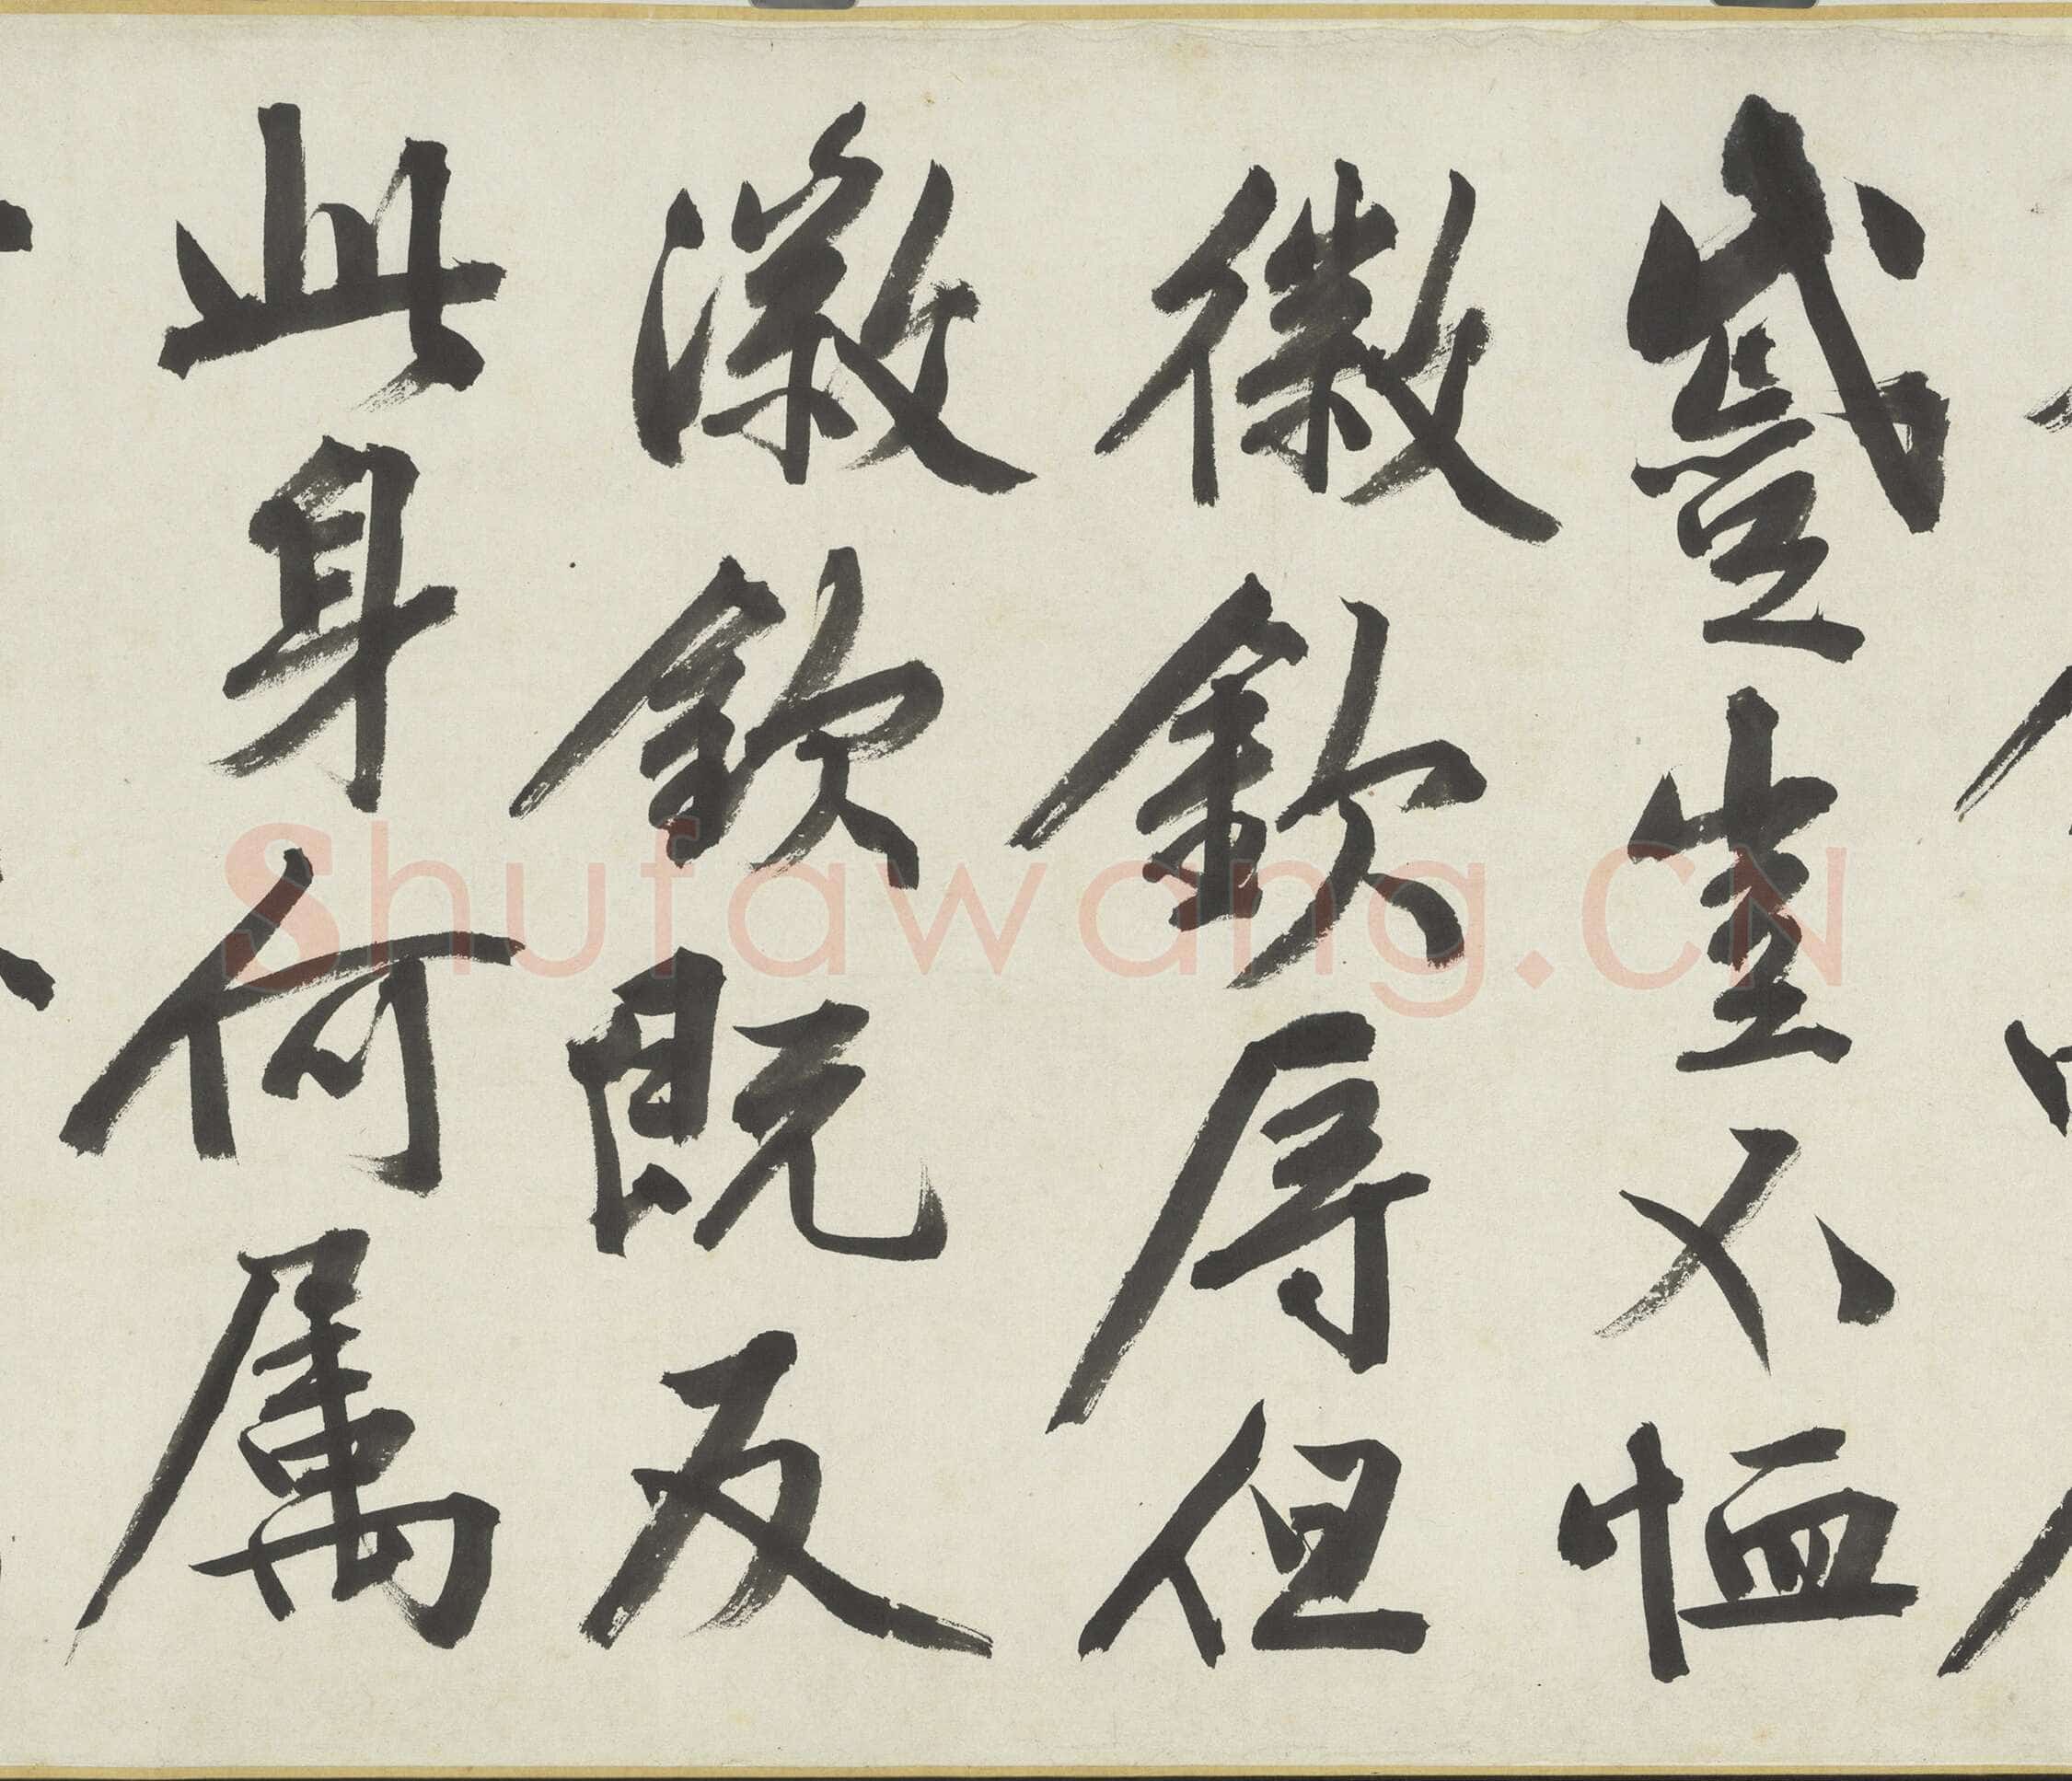 蹙豈不恤
徽欽辱但
徽欽既反
此身何属
Shufawang.CN